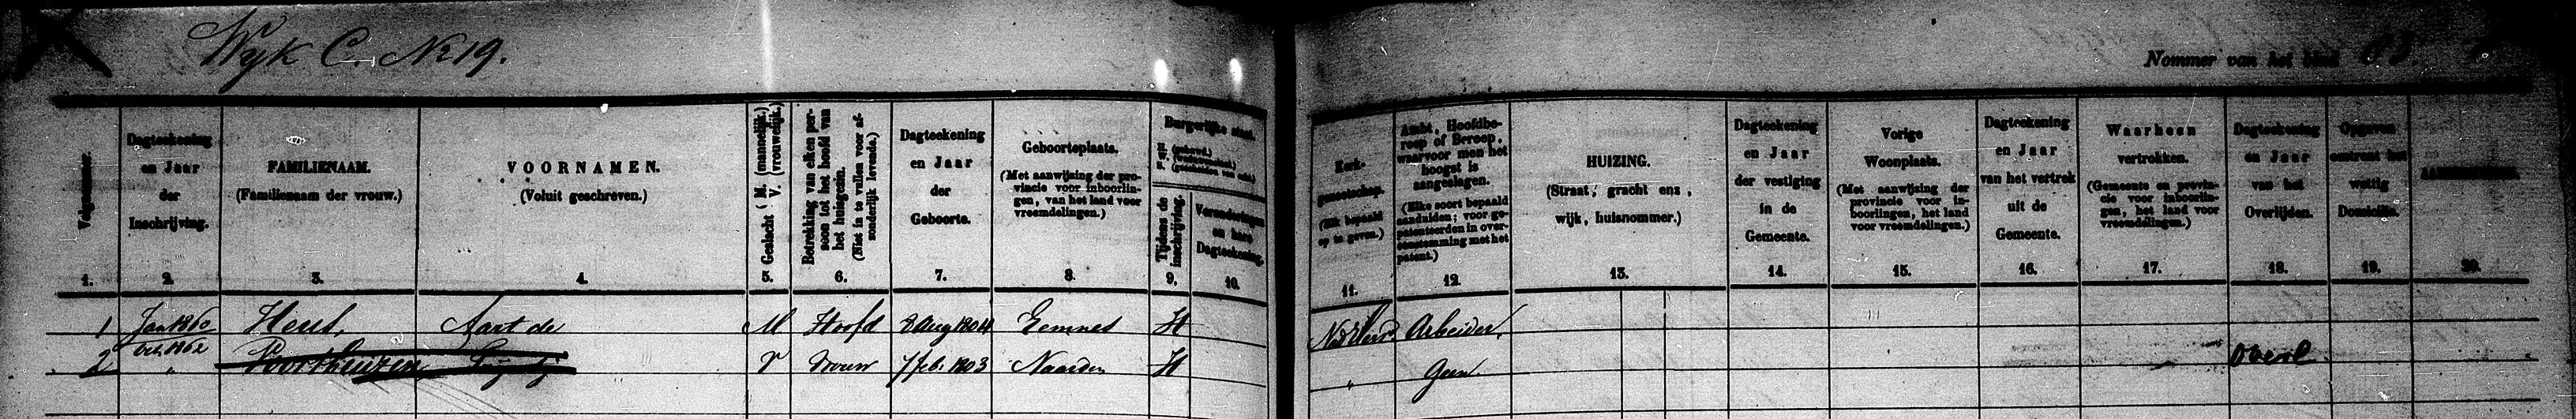 Wyk C. No 19.
Nommer van het blad
Volgnummer.
Dagteekening en Jaar der Inschrijving.
FAMILIENAAM.
(Familienaam der vrouw.)
VOORNAMEN.
(Voluit geschreven.)
Geslacht { M. (mannelijk.) V. (vrouwelijk.)
Betrekking van elken persoon tot het hoofd van het huisgezin.
(Niet in te vullen voor afzonderlijk levende.)
Dagteekening en Jaar der Geboorte.
Geboorteplaats.
(Met aanwijzing der provincie voor inboorlingen, van het land voor vreemdelingen.)
Burgerlijke staat.
Tijdens de inschrijving.
Veranderingen en hare Dagteekening.
Kerkgenootschap.
(Elk bepaald op te geven.)
Ambt, Hoofdberoep of Beroep, waarvoor men het hoogst is aangeslagen.
(Elke soort bepaald aanduiden; voor gepatenteerden in overeenstemming met het patent.)
HUIZING.
(Straat, gracht enz, wijk, huisnommer.)
Dagteekening en Jaar der vestiging in de Gemeente.
Vorige Woonplaats.
(Met aanwijzing der provincie voor inboorlingen, het land voor vreemdelingen.)
Dagteekening en Jaar van het vertrek uit de Gemeente.
Waarheen vertrokken.
(Gemeente en provincie voor inboorlingen, het land voor vreemdelingen.)
Dagteekening en Jaar van het Overlijden.
Opgaven omtrent het wettig Domicilie.
1. 2. 3. 4. 5. 6. 7. 8. 9. 10. 11. 12. 13. 14. 15. 16. 17. 18. 19. 20.
1 Jan 1860 Aart de M Hoofd 8 Aug 1804 Eemnes H Arbeider
2 " Voorthuizen V vrouw 7 feb. 1803 Naarden H " Geen Overl